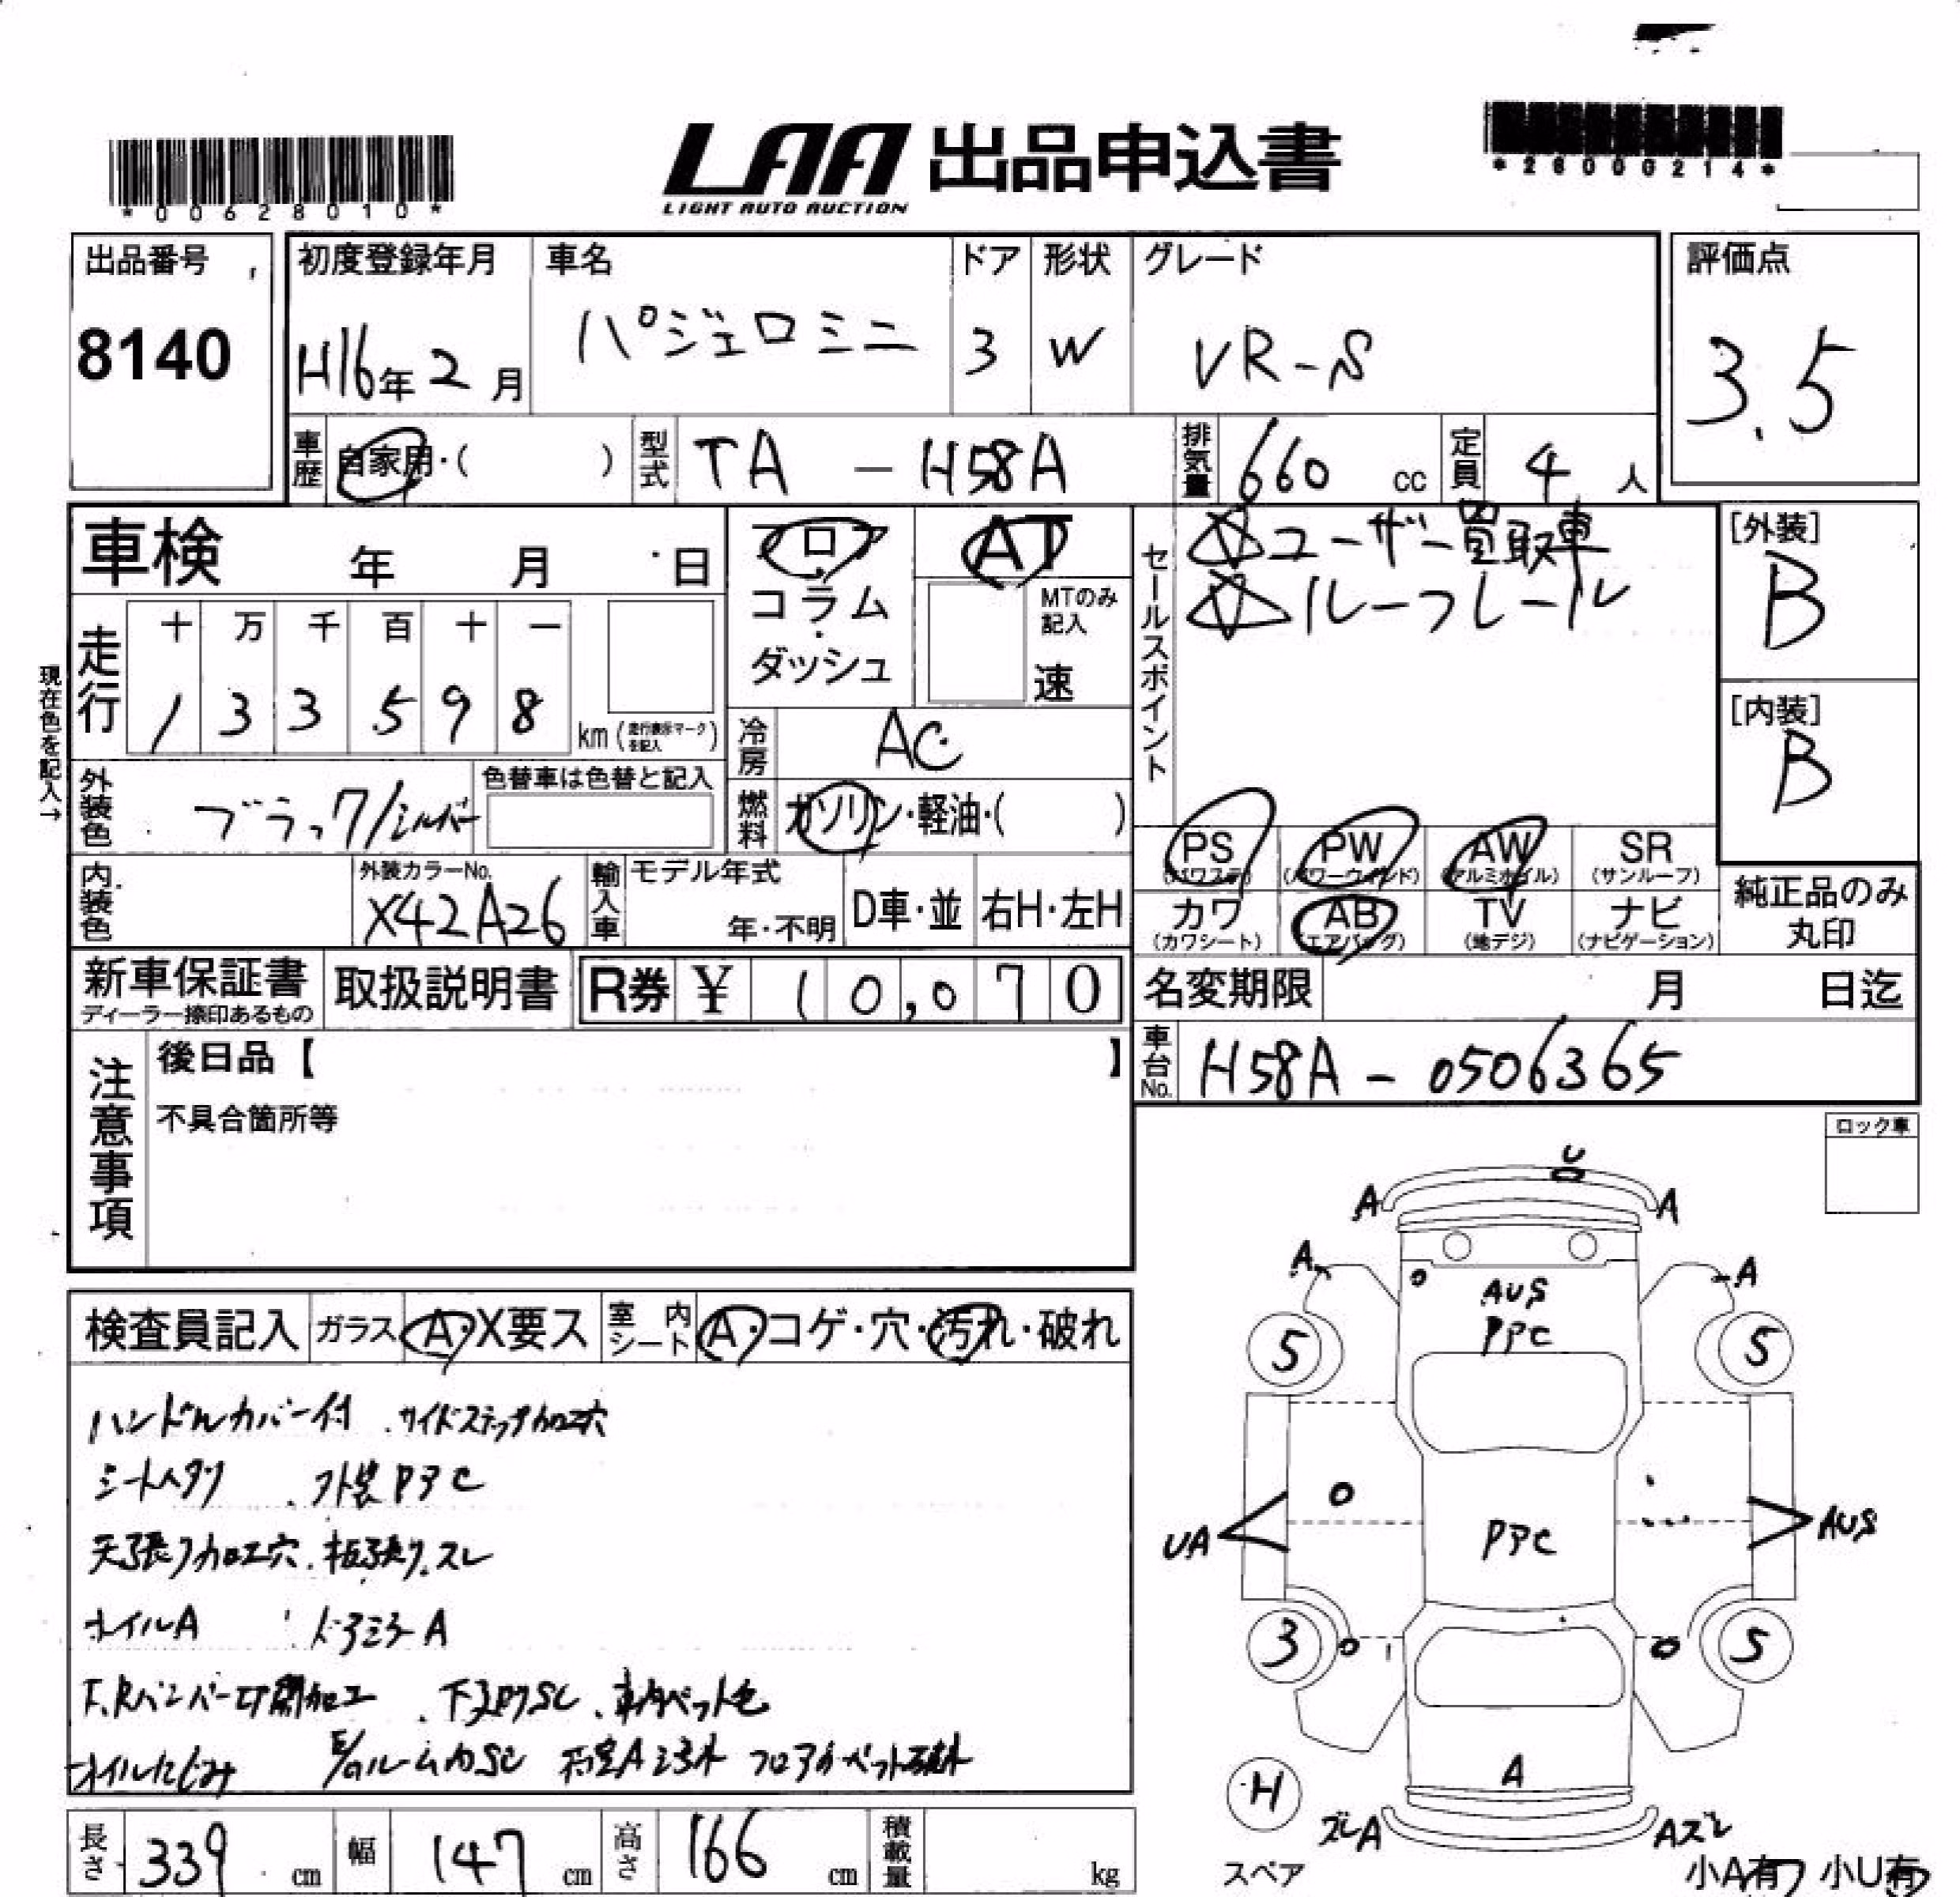 *00628010*
LAA 出品申込書
LIGHT AUTO AUCTION
*26000214*
出品番号
8140
初度登録年月
H16年2月
車名
パジェロミニ
ドア
3
形状
W
グレード
VR-S
評価点
3.5
車歴
自家用・( )
型式
TA - H58A
排気量
660 cc
定員
4 人
車検 年 月 日
走行
十 万 千 百 十 一
1 3 3 5 9 8
km (走行表示マークを記入)
現在色を記入→
外装色
ブラック/シルバー
色替車は色替と記入
内装色
外装カラーNo.
X42A26
フロア
コラム
・
ダッシュ
AT
MTのみ
記入
速
冷房
AC
燃料
ガソリン・軽油・( )
輸入車
モデル年式
年・不明
D車・並
右H・左H
セールスポイント
☆ユーザー買取車
☆ルーフレール
[外装]
B
[内装]
B
PS
(パワステ)
PW
(パワーウィンド)
AW
(アルミホイル)
SR
(サンルーフ)
カワ
(カワシート)
AB
(エアバッグ)
TV
(地デジ)
ナビ
(ナビゲーション)
純正品のみ
丸印
新車保証書
ディーラー捺印あるもの
取扱説明書
R券 ¥ 10,070
名変期限 月 日迄
車台No.
H58A - 0506365
注意事項
後日品【 】
不具合箇所等
ロック車
検査員記入
ガラス
A・X要ス
室内シート
A・コゲ・穴・汚れ・破れ
ハンドルカバー付 . サイドステップ加工穴
シートヘタリ . 外装PアC
天張り加工穴 . 板張り . スレ
ホイルA ドアミラーA
F、Rバンパー切開加工 . 下廻りSC
オイルにじみ E/GルームカSC フロアカーペット破れ
U
A A
A A
AUS
PアC
5 5
UA
PアC
AUS
3 5
A
H
スペア
ズレA
Aズレ
小A有 小U有
長さ
339 cm
幅
147 cm
高さ
166 cm
積載量
kg